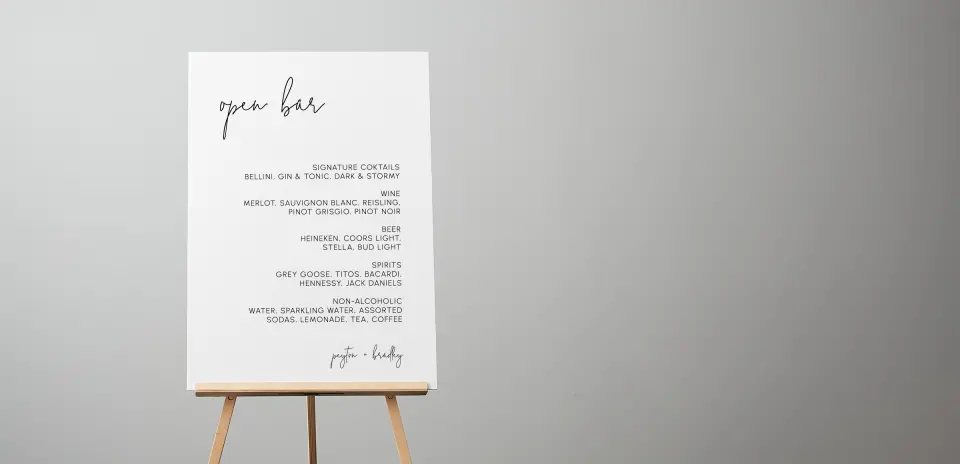 open bar
SIGNATURE COKTAILS
BELLINI, GIN & TONIC, DARK & STORMY
WINE
MERLOT, SAUVIGNON BLANC, REISLING,
PINOT GRISGIO, PINOT NOIR
BEER
HEINEKEN, COORS LIGHT,
STELLA, BUD LIGHT
SPIRITS
GREY GOOSE, TITOS, BACARDI,
HENNESSY, JACK DANIELS
NON-ALCOHOLIC
WATER, SPARKLING WATER, ASSORTED
SODAS, LEMONADE, TEA, COFFEE
peyton + bradley